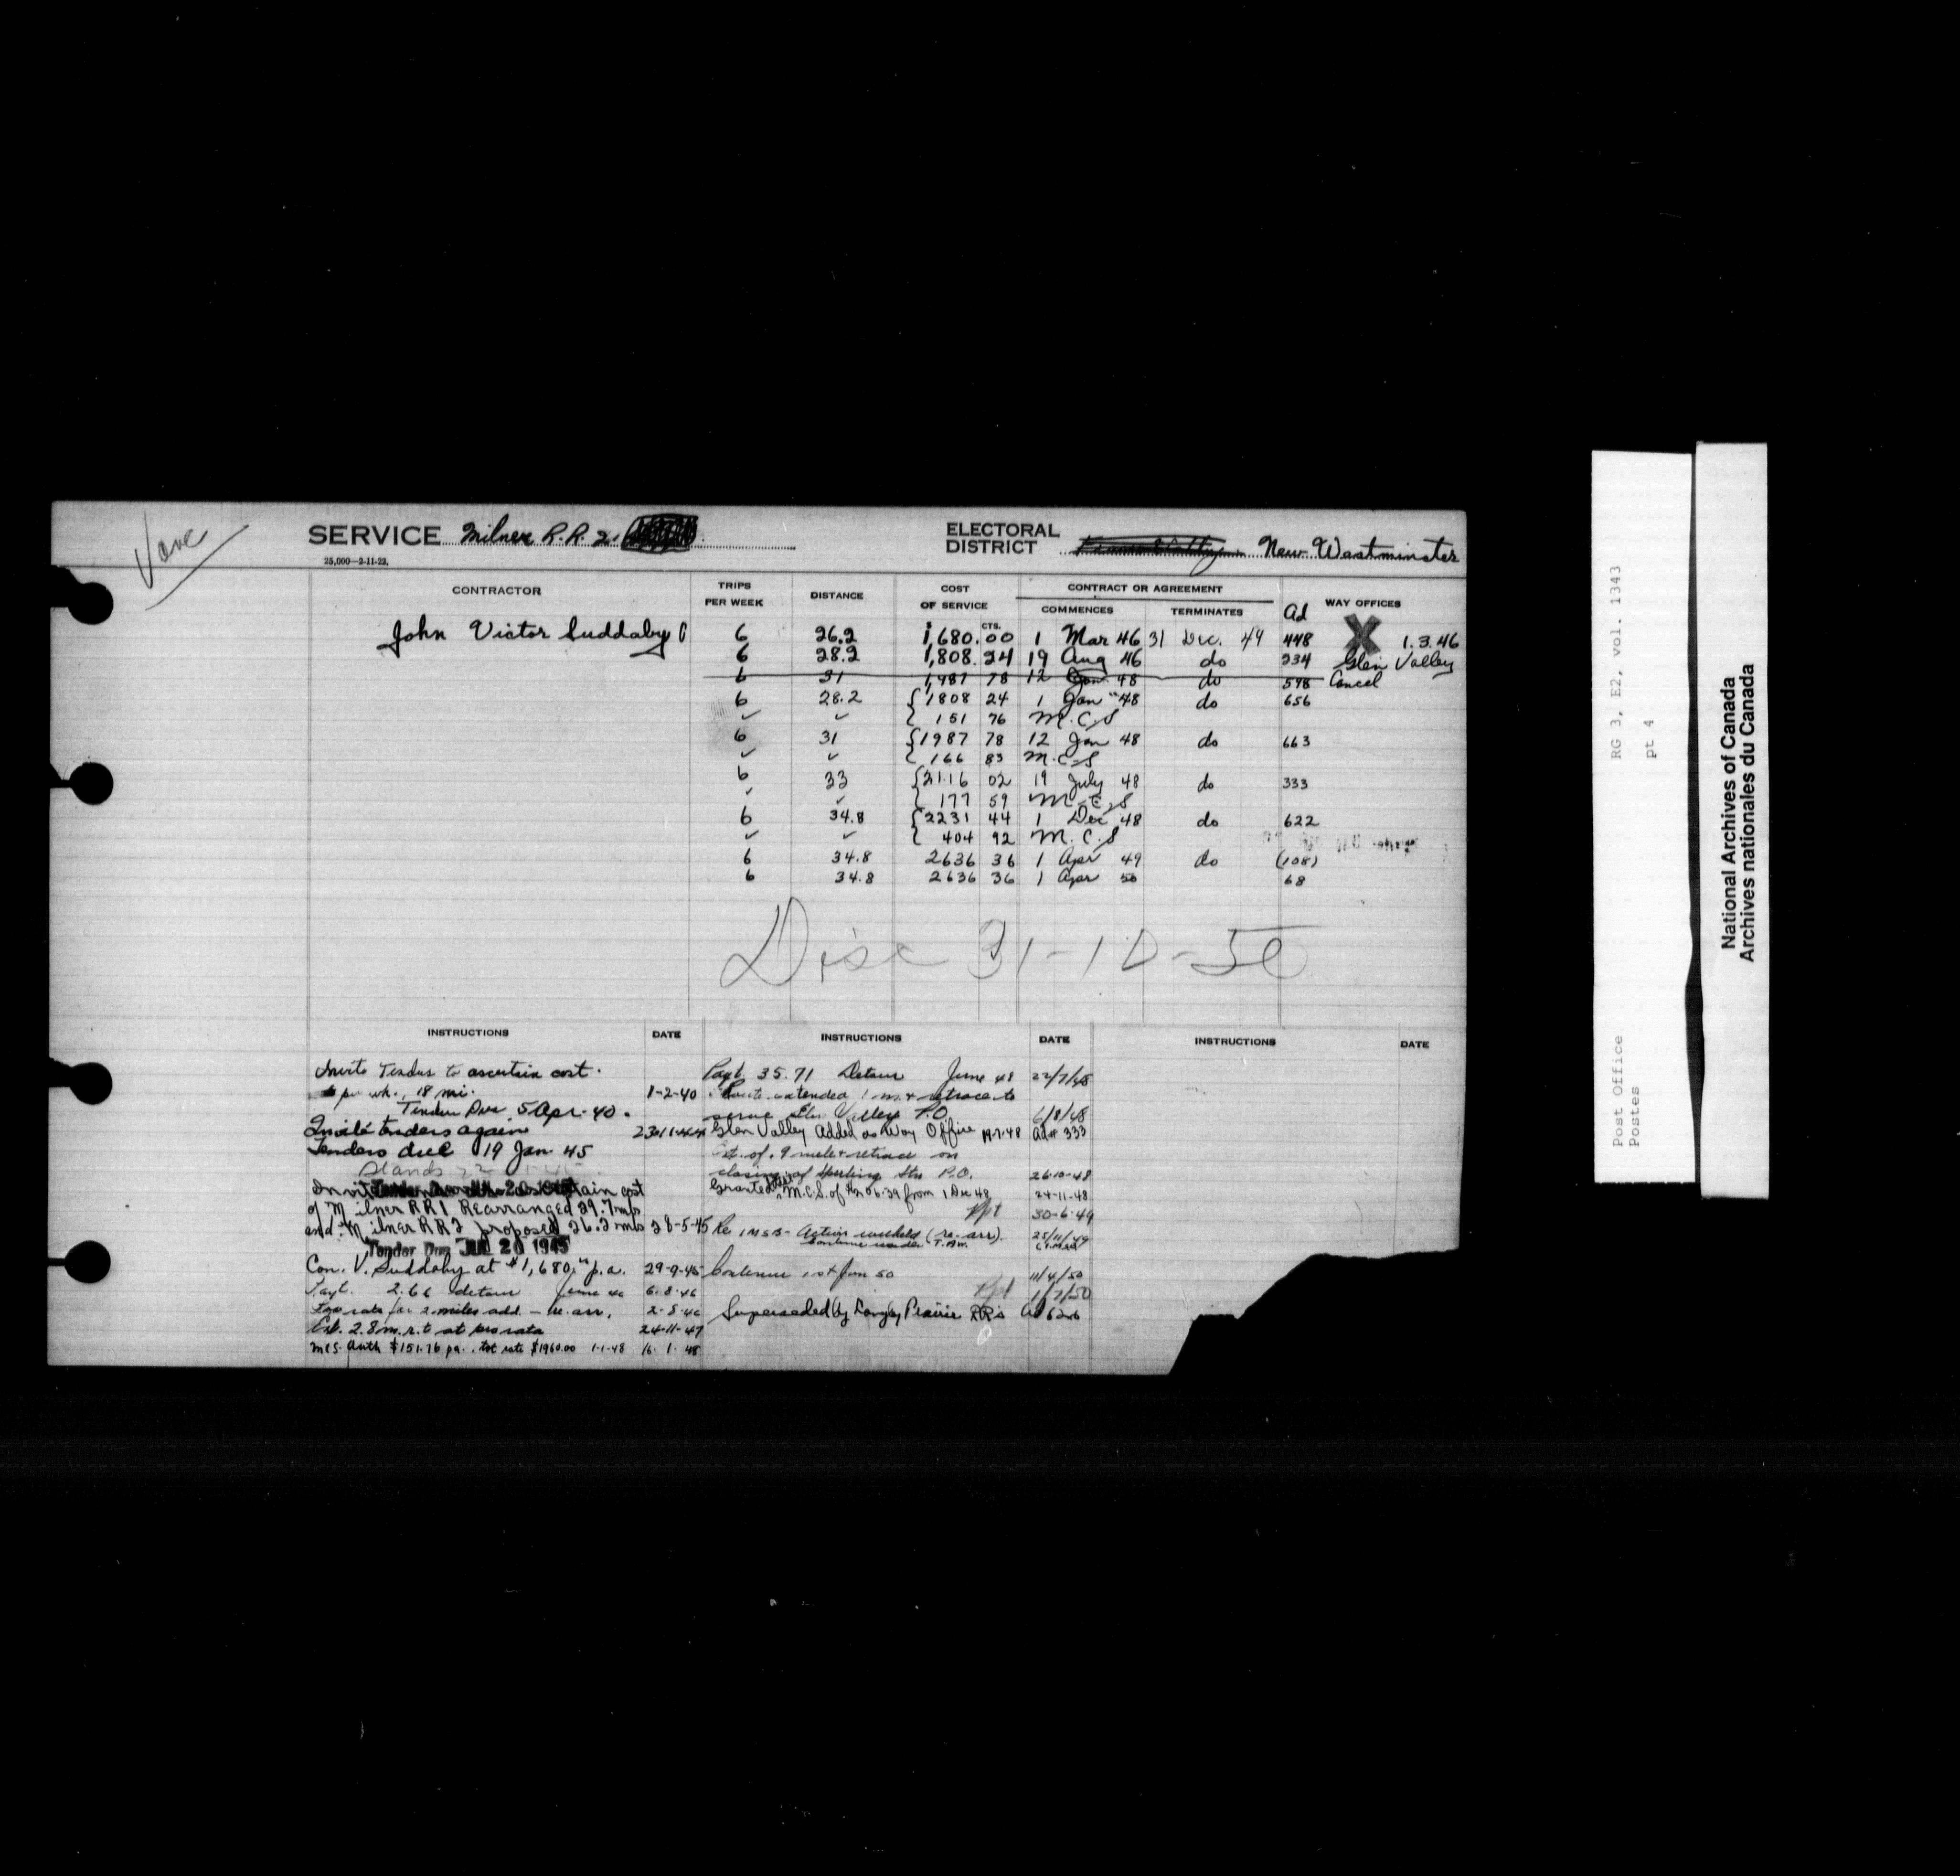 Vanc
SERVICE Milner R.R. 2.
25,000—2-11-22.
ELECTORAL DISTRICT New Westminster
CONTRACTOR TRIPS PER WEEK DISTANCE COST OF SERVICE CTS. CONTRACT OR AGREEMENT COMMENCES TERMINATES Ad WAY OFFICES
John Victor Suddaby 6 26.2 1,680.00 1 Mar 46 31 Dec. 49 448 X 1.3.46
6 28.2 1,808.24 19 Aug 46 do 234 Glen Valley
6 31 1,987 78 12 Jan 48 do 598 Cancel
6 28.2 {1808 24 1 Jan 48 do 656
✓ ✓ { 151 76 M.C.S
6 31 {1987 78 12 Jan 48 do 663
✓ ✓ { 166 83 M.C.S
6 33 {2116 02 19 July 48 do 333
✓ ✓ { 177 59 M.C.S
6 34.8 {2231 44 1 Dec 48 do 622
✓ ✓ { 404 92 M.C.S
6 34.8 2636 36 1 Apr 49 do (108)
6 34.8 2636 36 1 Apr 50 68
Disc 31-10-50
INSTRUCTIONS DATE
Invite Tenders to ascertain cost.
per wk., 18 mi. 1-2-40
Tenders Due 5 Apr-40.
Invite tenders again 23-11-44
Tenders due 19 Jan 45
Stands
Invite tenders to ascertain cost
of Milner RR1 Rearranged 29.7 mls
and Milner RR2 proposed 26.2 mls 28-5-45
Tender Due JUL 20 1945
Con. V. Suddaby at $1,680.00 p.a. 29-9-45
Payt. 2.66 detour June 46 6-8-46
Pro rata for 2 miles add. — re. arr. 2-8-46
Ext. 2.8 m. r.t. at pro rata 24-11-47
MCS. Auth $151.76 pa. tot rate $1960.00 1-1-48 16-1-48
INSTRUCTIONS DATE
Payt. 35.71 Detour June 48 22/7/48
Route extended 1 m. & retrace to
serve Glen Valley P.O 6/8/48
Glen Valley Added as Way Office 19-7-48 Ad# 333
Ext. of .9 mile & retrace on
closing of Sperling Stn P.O. 26-10-48
Granted M.C.S. of from 1 Dec 48 24-11-48
Rpt 30-6-49
Re IMSB- Action withheld (re-arr). 25/11/49
Continue under T.A.
Continue 1st Jan 50 11/4/50
Rpt 1/7/50
Superseded by Langley Prairie RR's Ad 626
INSTRUCTIONS DATE
RG 3, E2, vol. 1343
pt 4
Post Office
Postes
National Archives of Canada
Archives nationales du Canada